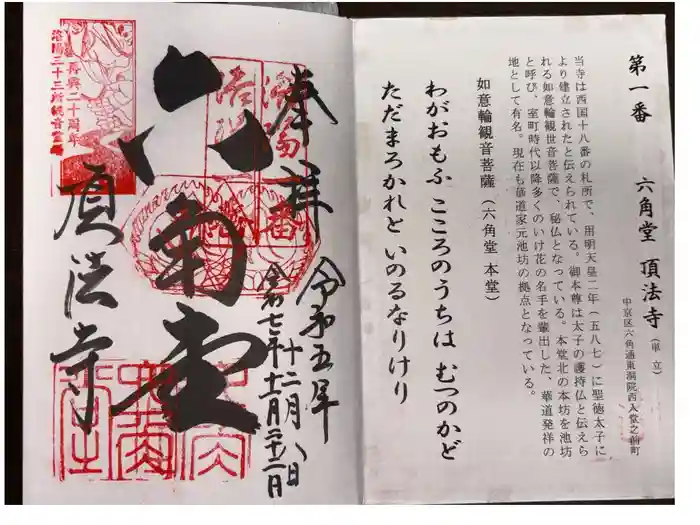 第一番　六角堂 頂法寺（単立）
中京区六角通東洞院西入堂之前町
当寺は西国十八番の札所で、用明天皇二年（五八七）に聖徳太子に
より建立されたと伝えられている。御本尊は太子の護持仏と伝えら
れる如意輪観世音菩薩で、秘仏となっている。本堂北の本坊を池坊
と呼び、室町時代以降多くのいけ花の名手を輩出した、華道発祥の
地として有名。現在も華道家元池坊の拠点となっている。
如意輪観音菩薩（六角堂 本堂）
わがおもふ こころのうちは むつのかど
ただまろかれと いのるなりけり
奉拝
令和五年
十二月八日
令和七年十一月二十二日
六角堂
頂法寺
再興二十周年
洛陽三十三所観音霊場